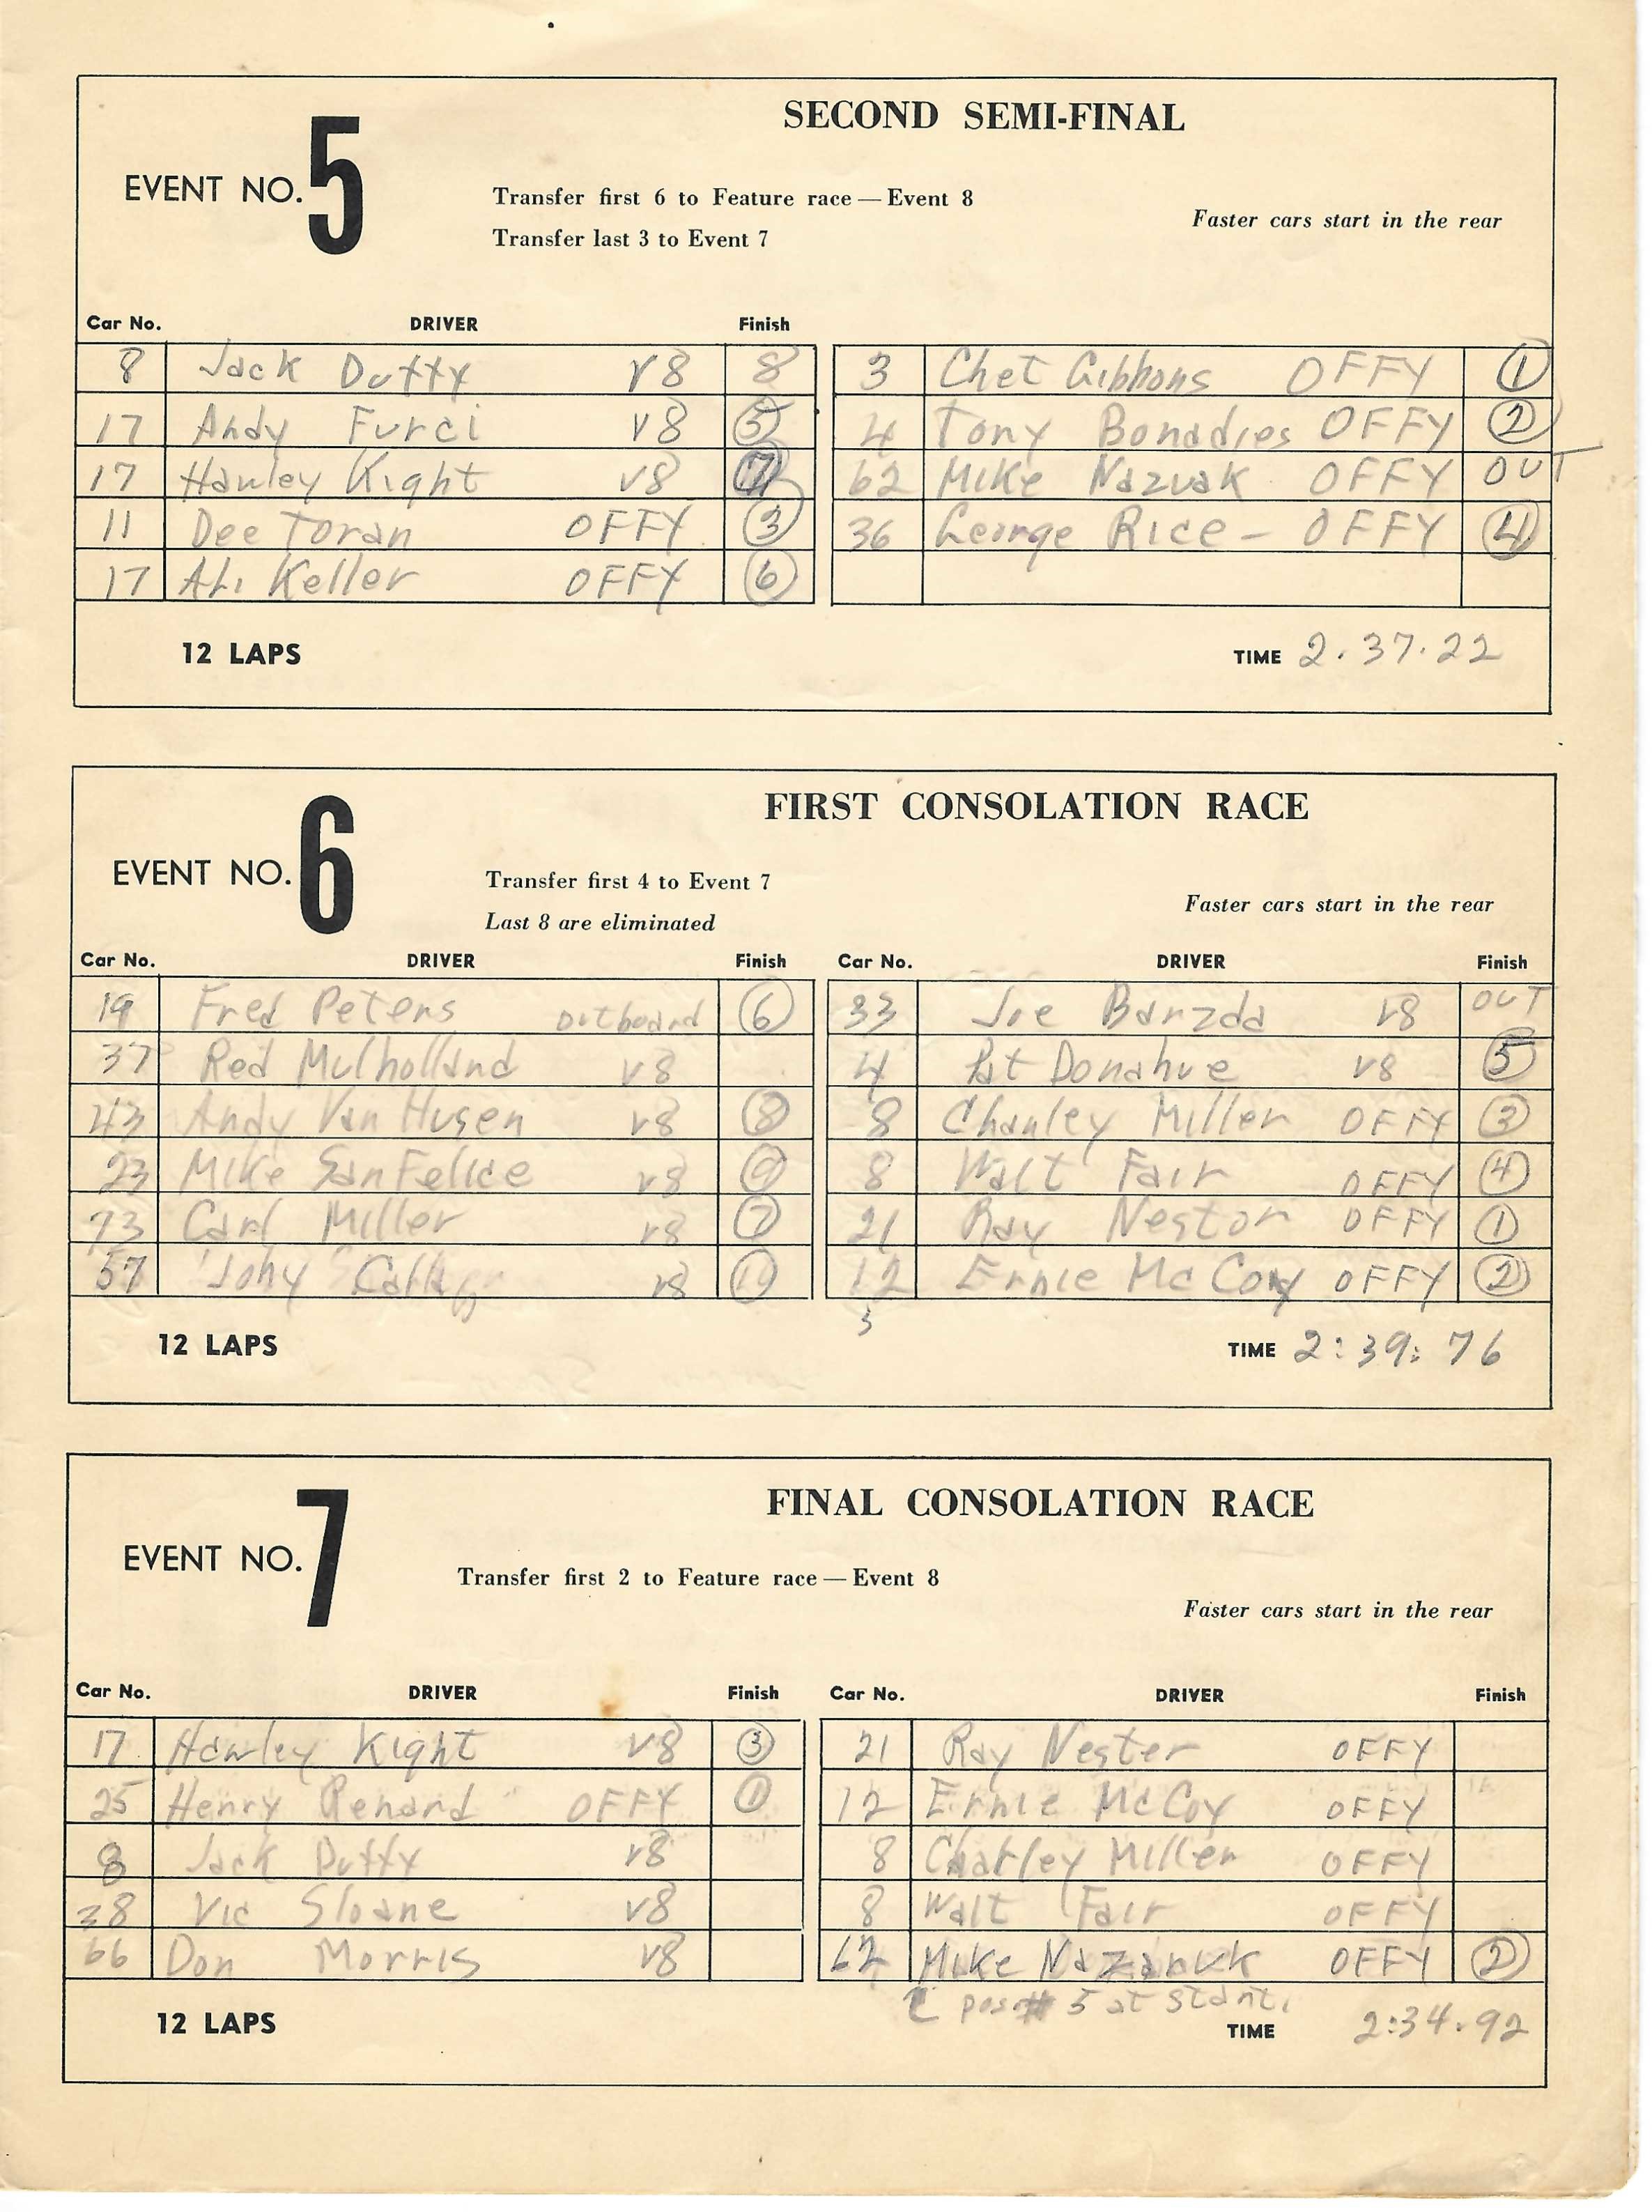 SECOND SEMI-FINAL
EVENT NO. 5
Transfer first 6 to Feature race — Event 8
Transfer last 3 to Event 7
Faster cars start in the rear
Car No. DRIVER Finish
8 Jack Duffy V8 8
17 Andy Furci V8 5
17 Hawley Kight V8 7
11 Dee Toran OFFY 3
17 Al. Keller OFFY 6
3 Chet Gibbons OFFY 1
4 Tony Bonadies OFFY 2
62 Mike Nazuak OFFY OUT
36 George Rice - OFFY 4
12 LAPS
TIME 2.37.22
FIRST CONSOLATION RACE
EVENT NO. 6
Transfer first 4 to Event 7
Last 8 are eliminated
Faster cars start in the rear
Car No. DRIVER Finish Car No. DRIVER Finish
19 Fred Peters outboard 6
37 Red Mulholland V8
43 Andy Van Husen V8 8
23 Mike SanFelice V8 9
73 Carl Miller V8 7
57 Johy V8 10
33 Joe Barzda V8 OUT
4 Pat Donahue V8 5
8 Charley Miller OFFY 3
8 Walt Fair OFFY 4
21 Ray Nestor OFFY 1
12 Ernie McCoy OFFY 2
3
12 LAPS
TIME 2:39:76
FINAL CONSOLATION RACE
EVENT NO. 7
Transfer first 2 to Feature race — Event 8
Faster cars start in the rear
Car No. DRIVER Finish Car No. DRIVER Finish
17 Hawley Kight V8 3
25 Henry Renard OFFY 1
8 Jack Duffy V8
38 Vic Sloane V8
66 Don Morris V8
21 Ray Nester OFFY
12 Ernie McCoy OFFY
8 Charley Miller OFFY
8 Walt Fair OFFY
62 Mike Nazaruk OFFY 2
pos # 5 at start.
12 LAPS
TIME 2:34.92